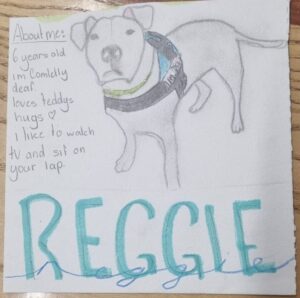 About me:
6 years old
im Comletly
deaf
loves teddys
hugs ♡
I like to watch
tv and sit on
your lap.
REGGIE
reggie